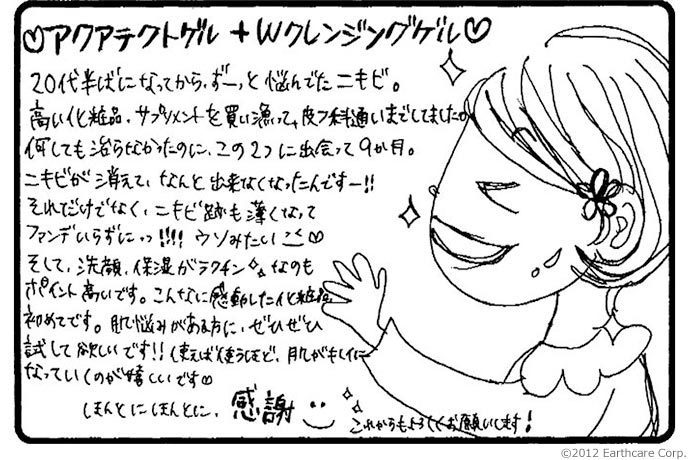 ♡アクアテクトゲル+Wクレンジングゲル♡
20代半ばになってから、ずーっと悩んでたニキビ。
高い化粧品、サプリメントを買い漁って、皮フ科通いまでしてましたが
何しても治らなかったのに、この2つに出会って9か月。
ニキビが消えて、なんと出来なくなったんですー!!
それだけでなく、ニキビ跡も薄くなって
ファンデいらずにっっ!!!! ウソみたい♡
そして、洗顔、保湿がラクチンなのも
ポイント高いです。こんなに感動した化粧品
初めてです。肌悩みがある方に、ぜひぜひ
試して欲しいです!! 使えば使うほど、肌がキレイに
なっていくのが嬉しいです♡
ほんとにほんとに、感謝
これからもよろしくお願いします!
©2012 Earthcare Corp.